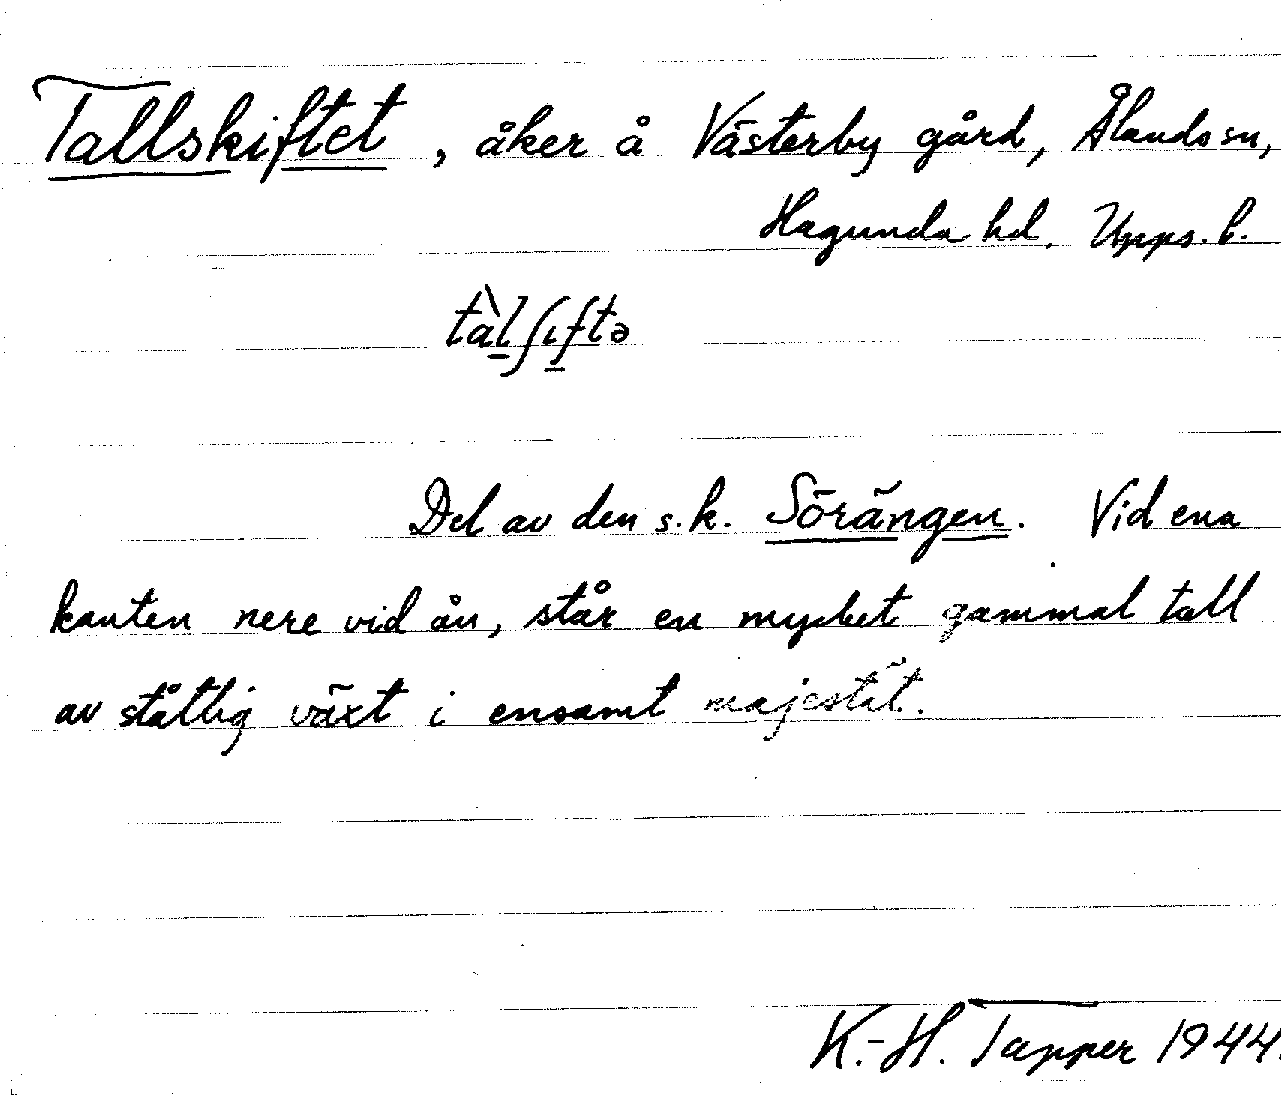 Tallskiftet, åker å Västerby gård, Ålands sn,
Hagunda hd. Upps. l.
tàlʃıftə
Del av den s.k. Sörängen. Vid ena
kanten nere vid ån, står en mycket gammal tall
av ståtlig växt i ensamt majestät.
K.-H. Tapper 1944.